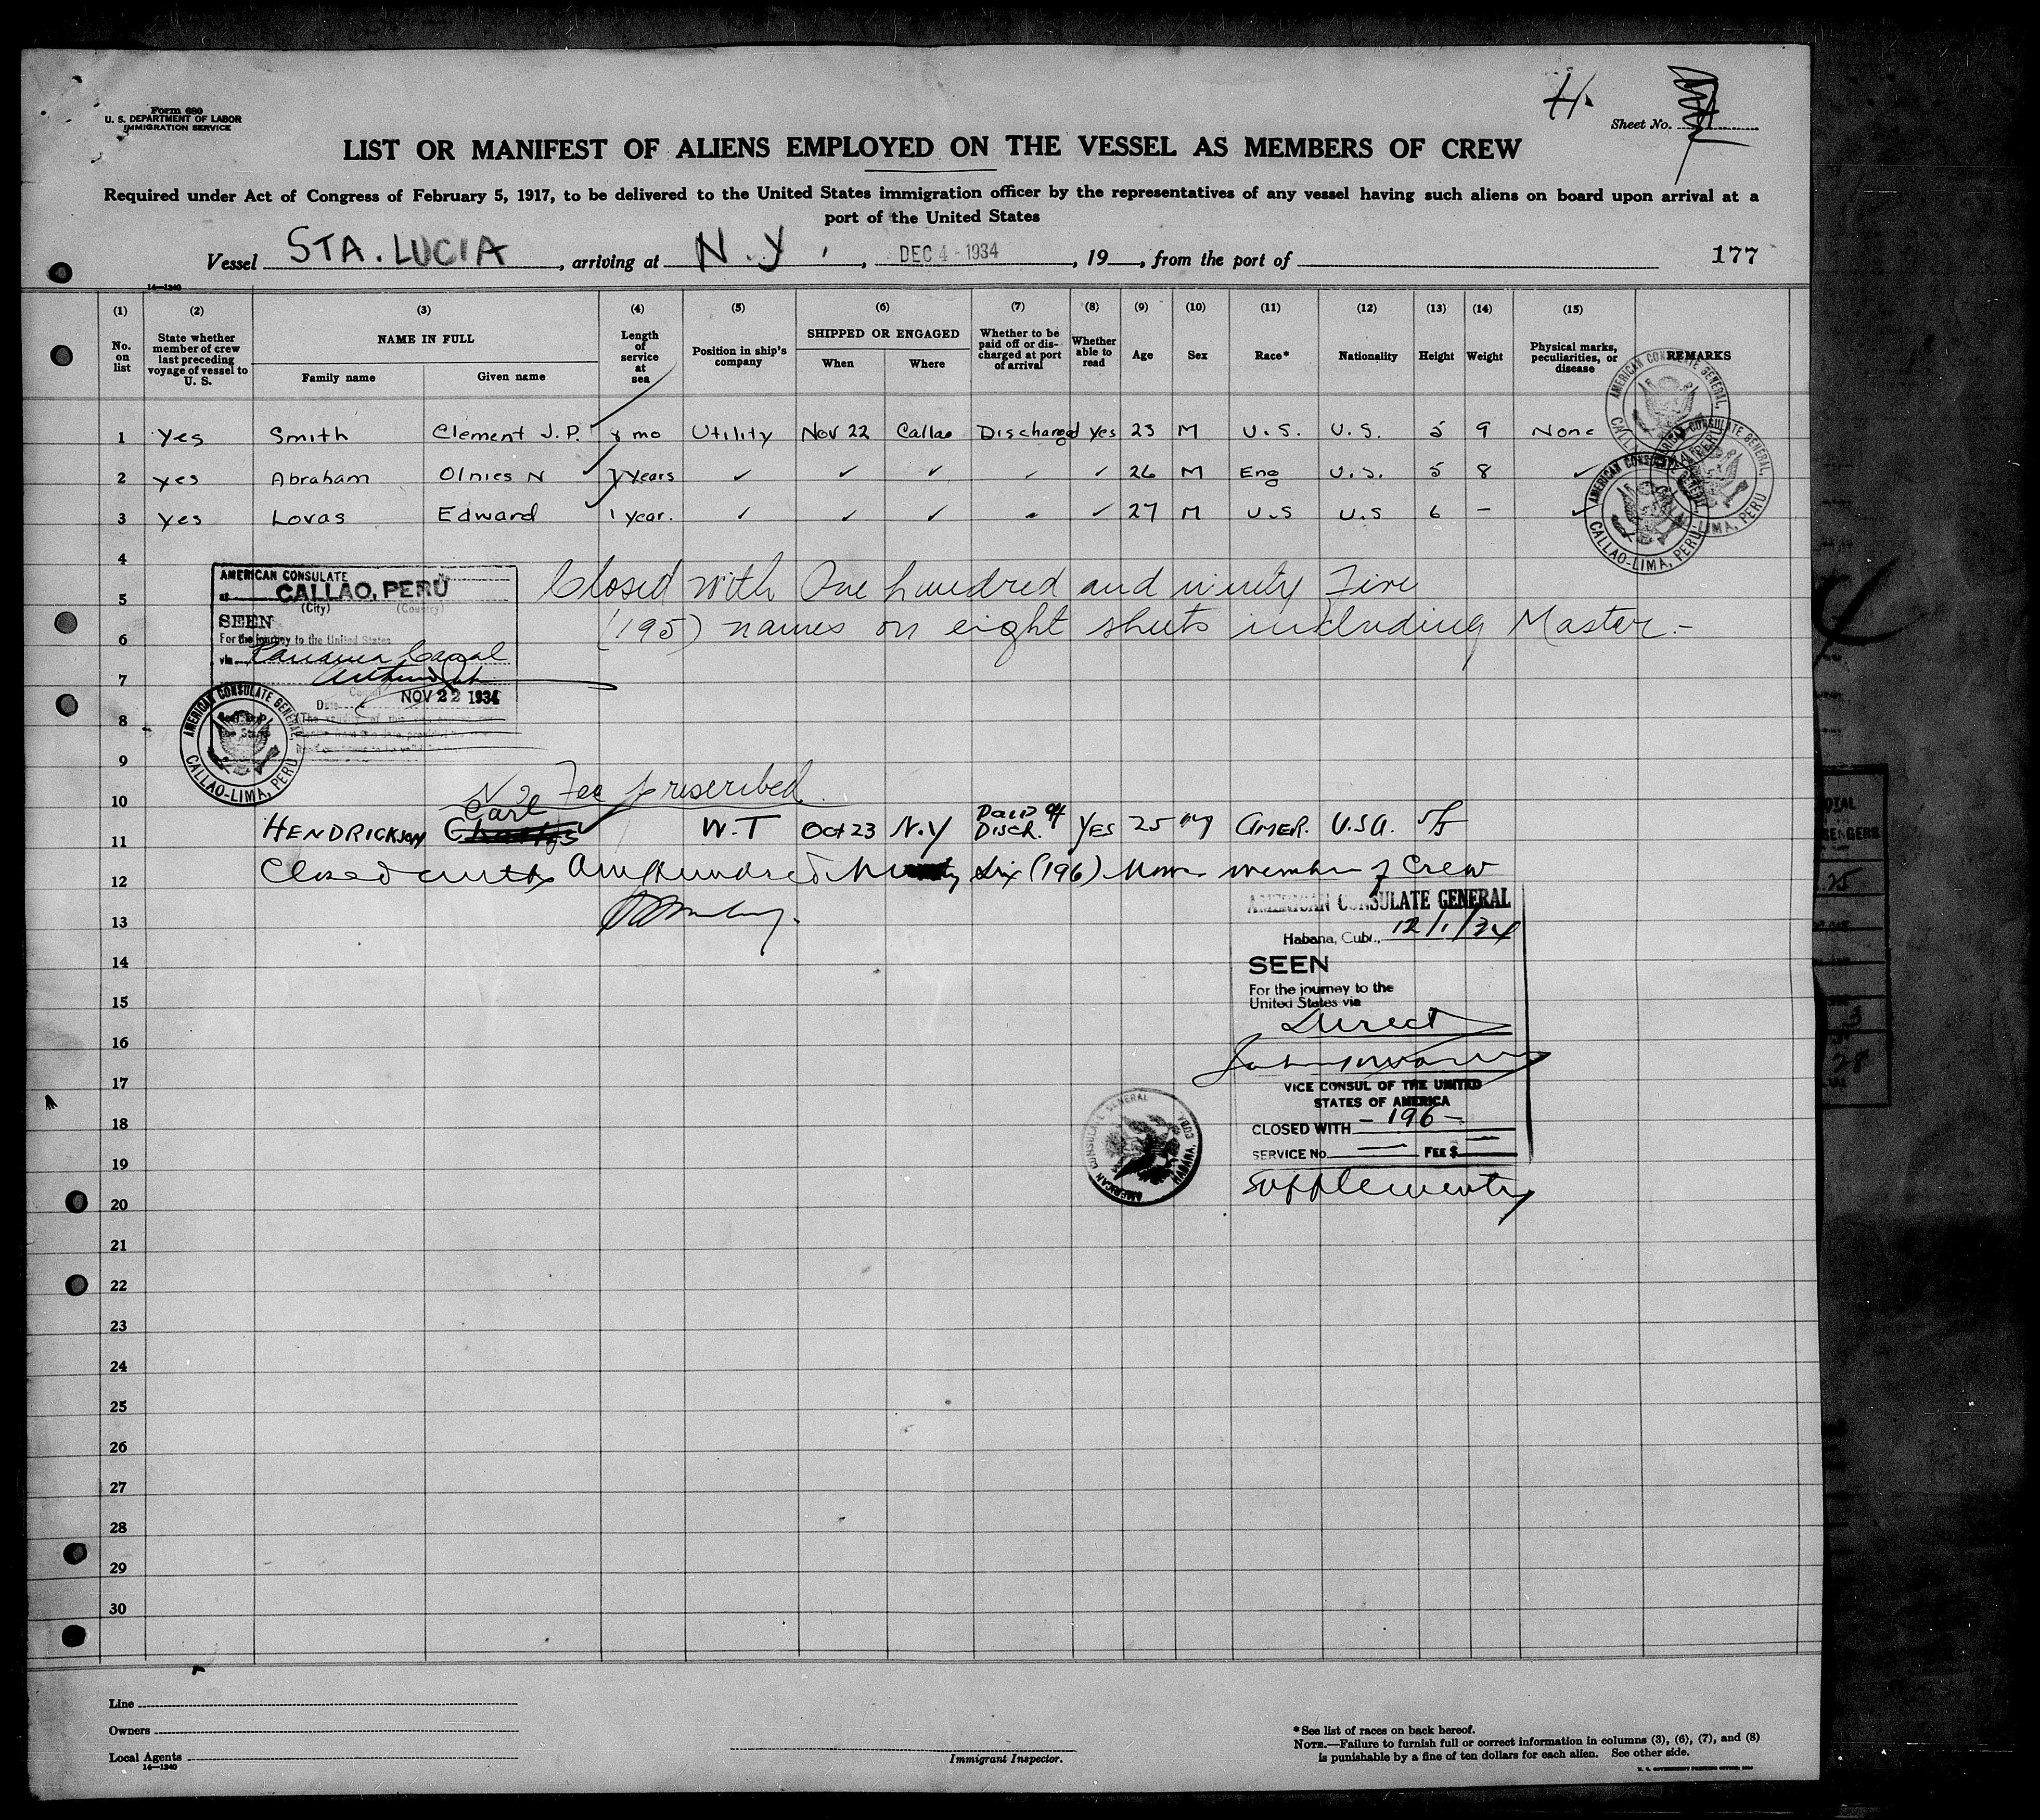 Form 680
U. S. DEPARTMENT OF LABOR
IMMIGRATION SERVICE
H.
Sheet No.
LIST OR MANIFEST OF ALIENS EMPLOYED ON THE VESSEL AS MEMBERS OF CREW
Required under Act of Congress of February 5, 1917, to be delivered to the United States immigration officer by the representatives of any vessel having such aliens on board upon arrival at a
port of the United States
Vessel STA. LUCIA, arriving at N.Y., DEC 4 - 1934, 19, from the port of 177
14—1240
(1) (2) (3) (4) (5) (6) (7) (8) (9) (10) (11) (12) (13) (14) (15)
No. on list
State whether member of crew last preceding voyage of vessel to U. S.
NAME IN FULL
Family name Given name
Length of service at sea
Position in ship's company
SHIPPED OR ENGAGED
When Where
Whether to be paid off or discharged at port of arrival
Whether able to read
Age Sex Race* Nationality Height Weight
Physical marks, peculiarities, or disease
REMARKS
1 Yes Smith Clement J.P. mo Utility Nov 22 Callao Discharged Yes 23 M U.S. U.S. 5 9 None
2 yes Abraham Olnies N Years ✓ ✓ ✓ ✓ ✓ 26 M Eng U.S. 5 8 ✓
3 Yes Lovas Edward 1 year. ✓ ✓ ✓ ✓ 27 M U.S U.S 6 – ✓
AMERICAN CONSULATE GENERAL, CALLAO-LIMA, PERU
4
5
6
7
8
9
10
11
12
13
14
15
16
17
18
19
20
21
22
23
24
25
26
27
28
29
30
AMERICAN CONSULATE
at CALLAO, PERU
(City) (Country)
SEEN
For the journey to the United States
via Panama Canal
Consul
Date NOV 22 1934
AMERICAN CONSULATE GENERAL, CALLAO-LIMA, PERU
Closed with One hundred and ninety Five
(195) names on eight sheets including Master.-
No Fee prescribed
Carl
HENDRICKSON W.T Oct 23 N.Y PAID off DISCH. YES 25 M AMER. U.S.A. 5/5
Closed with One Hundred Six (196) member of Crew
AMERICAN CONSULATE GENERAL
Habana, Cuba, 12/1/34
SEEN
For the journey to the
United States via
Direct
VICE CONSUL OF THE UNITED
STATES OF AMERICA
CLOSED WITH - 196 -
SERVICE No. FEE $
Supplementy
AMERICAN CONSULATE GENERAL HABANA, CUBA
Line
Owners
Local Agents
14—1240
Immigrant Inspector.
*See list of races on back hereof.
NOTE.—Failure to furnish full or correct information in columns (3), (6), (7), and (8)
is punishable by a fine of ten dollars for each alien. See other side.